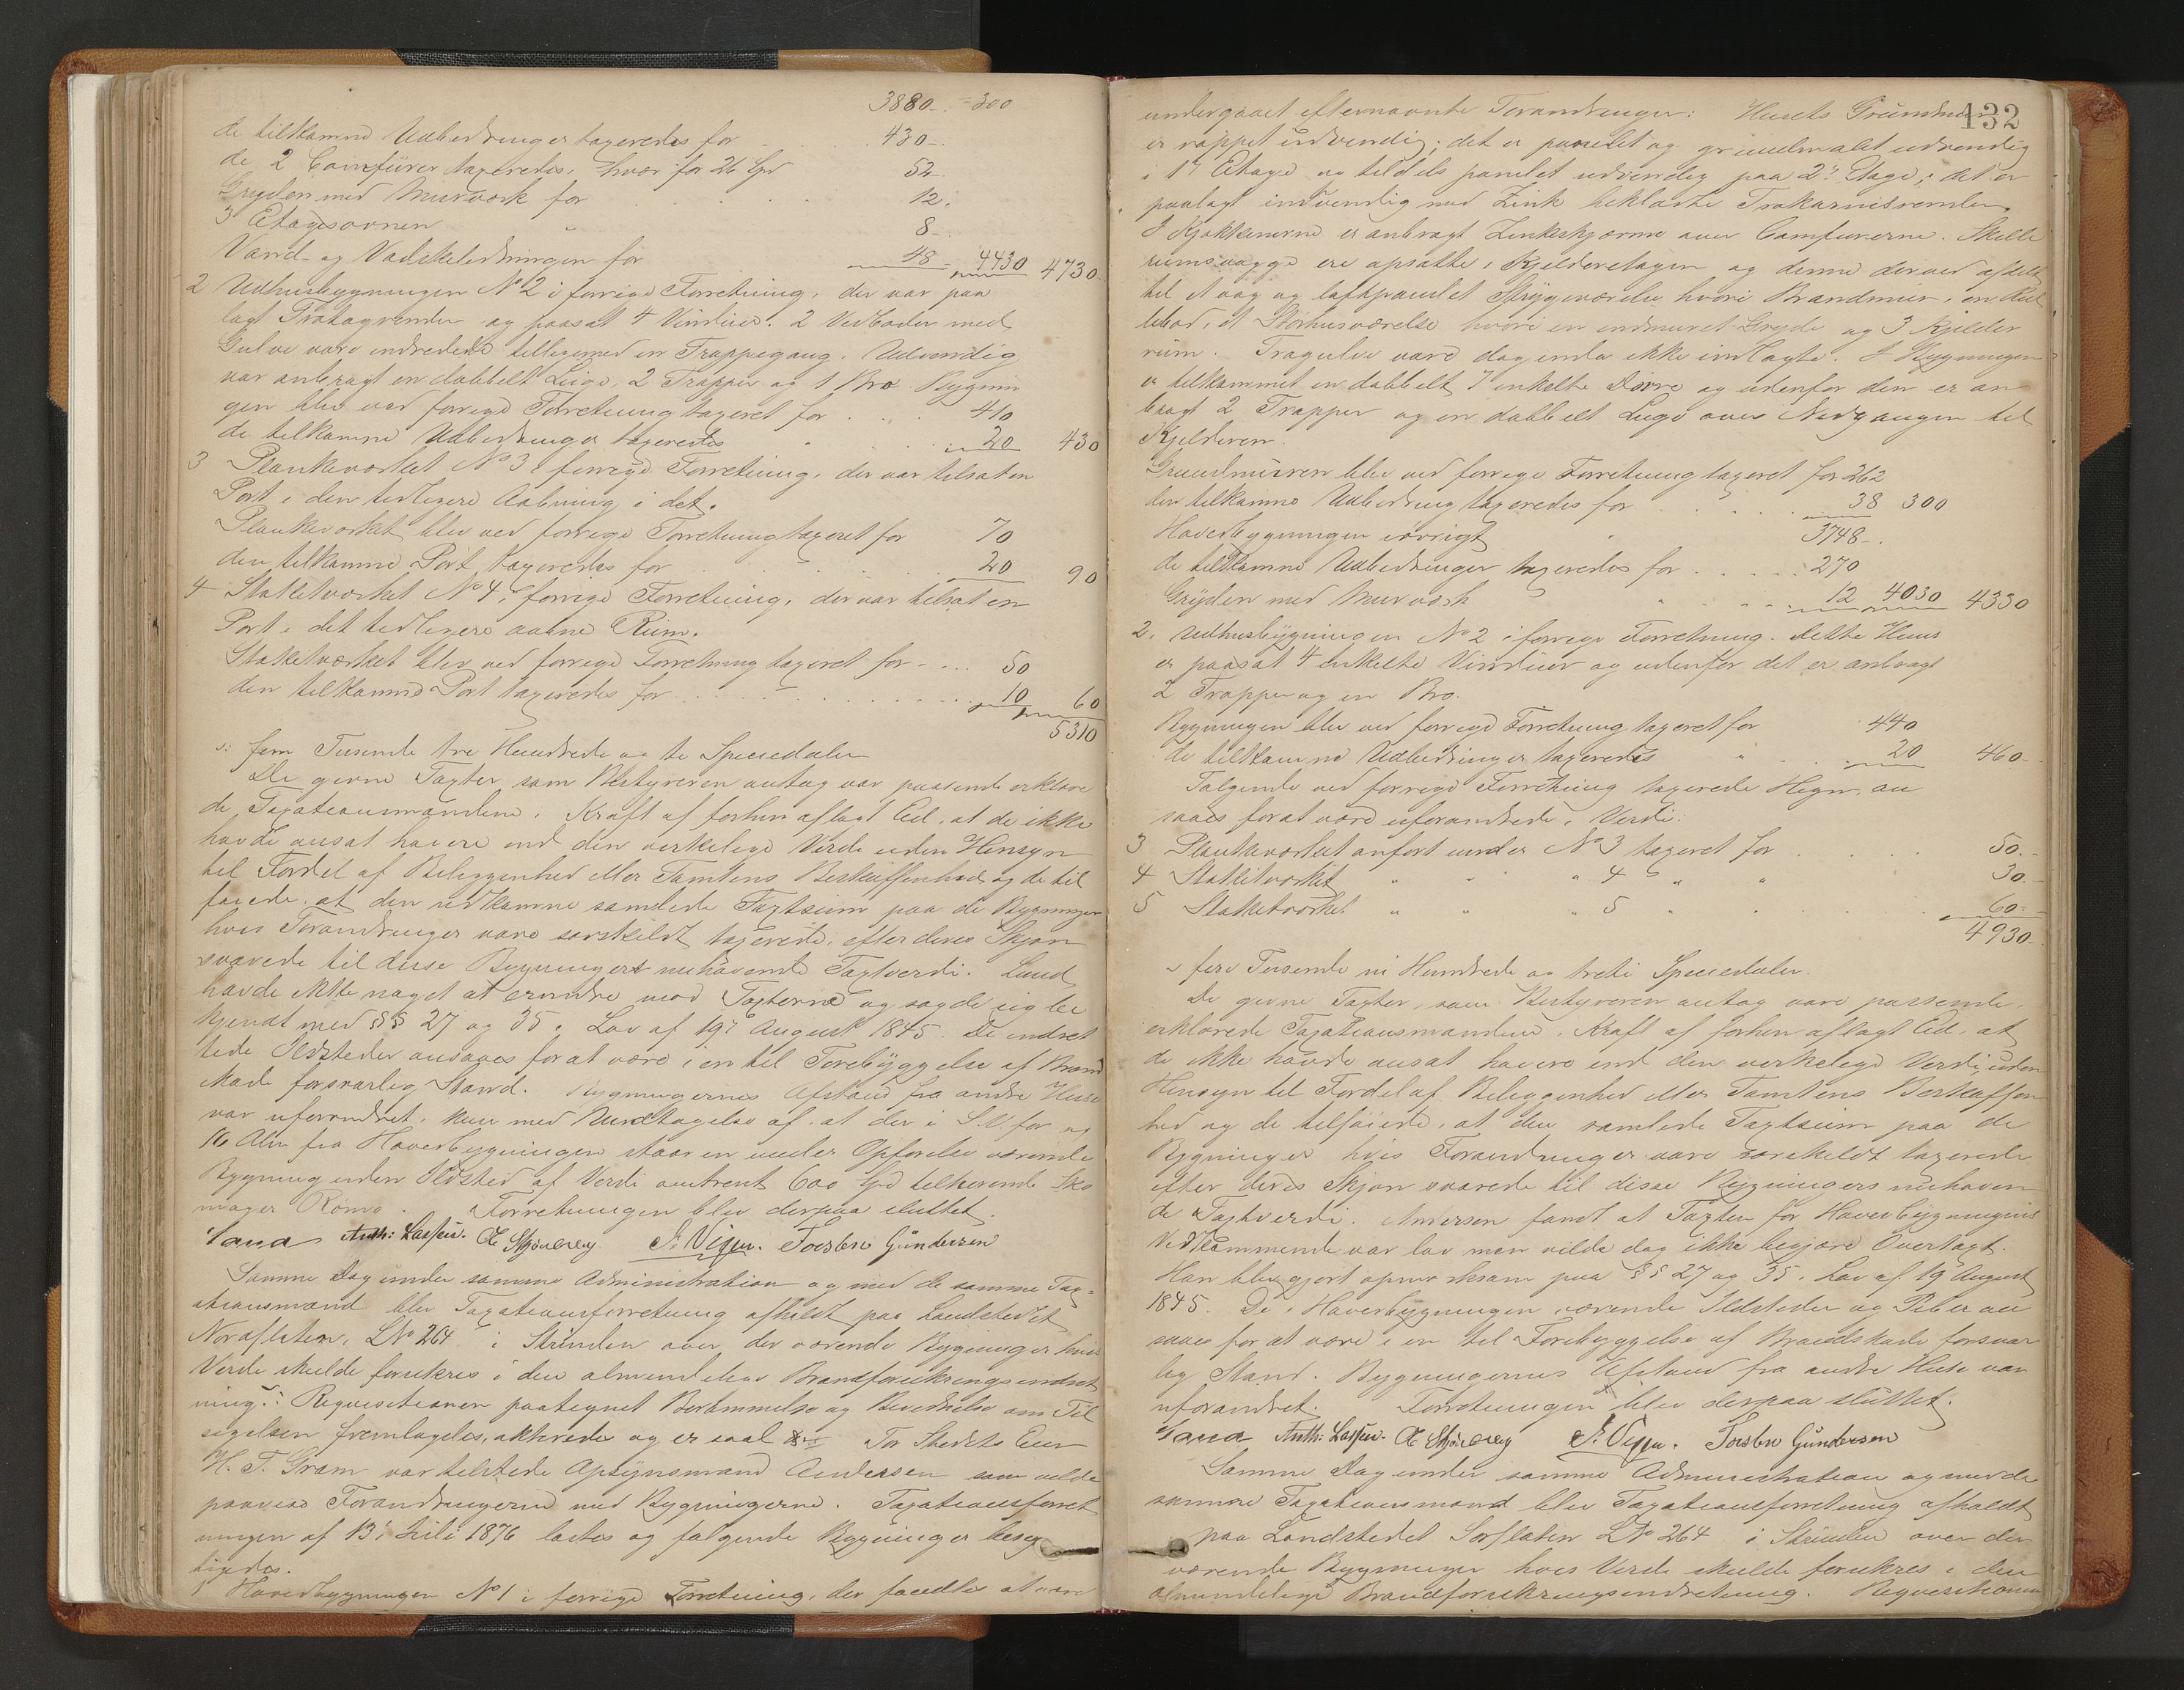 3880 - 300
de tilkomne Udbedringer taxeredes for 430 -
de 2 Comfürer taxeredes, hver for 26 Spd 52
Gryden med Murværk for 12.
3 Etagesovnen " 8 -
Vand- og Vadskeledningen for 48 - 4430 4730
2 Udhusbygningen No 2 i forrige Forretning, der var paa
lagt Tratagrender og paasat 4 Vinduer. 2 Vedboder med
Gulve vare indredede tilligemed en Trappegang. Udvendig
var anbragt en dobbelt Luge, 2 Trapper og 1 Bro. Bygnin
gen blev ved forrige Forretning taxeret for 410
de tilkomne Udbedringer taxeredes 20 430
3 Plankeværket No 3 i forrige Forretning, der var tilsat en
Port i den tidligere Aabning i det.
Plankeværket blev ved forrige Forretning taxeret for 70
den tilkomne Port taxeredes for 20 90
4 Stakitværket No 4 i forrige Forretning, der var tilsat en
Port i det tidligere aabne Rum.
Stakitværket blev ved forrige Forretning taxeret for - 50
den tilkomne Port taxeredes for 10 60
5310
s: fem Tusinde tre Hundrede og ti Speciedaler
De givne Taxter, som Bestyreren antog var passende erklære
de Taxationsmændene, i Kraft af forhen aflagt Eed, at de ikke
havde ansat høiere end den virkelige Værdi uden Hensyn
til Fordel af Beliggenhed eller Tomtens Beskaffenhed og de til
føiede, at den udkomne samlede Taxtsum paa de Bygninger
hvis Forandringer vare særskildt taxerede, efter deres Skjøn
svarede til disse Bygningers nuhavende Taxtværdi. Lund
havde ikke noget at erindre mod Taxterne og sagde sig be
kjendt med §§ 27 og 35 i Lov af 19de August 1845. De indret
tede Ildsteder ansaaes for at være i en til Forebyggelse af Brand
skade forsvarlig Stand. Bygningernes Afstand fra andre Huse
var uforandret, kun med Undtagelse af, at der i S.V. for og
16 Alen fra Hovedbygningen staar en under Opførelse værende
Bygning uden Ildsted af Værdi omtrent 600 Spd tilhørende Sko
mager Romo. Forretningen blev derpaa sluttet.
Anth: Torsten Gundersen
Samme Dag under samme Administration og med de samme Tax-
ationsmænd blev Taxationsforretning afholdt paa Landstedet
Norafloten, LNo 264 i Strinden over der værende Bygninger hvis
Værdi skulde forsikres i den almindelige Brandforsikringsindret
ning. Reqvisitionen paategnet Berammelse og Bevidnelse om Til
sigelsen fremlagdes, akterede og er saal For Stedets Eier
H. T. Gram var tilstede Opsynsmand Andersen som vilde
paavise Forandringerne med Bygningerne. Taxationsforret
ningen af 13de Juli 1876 læstes og følgende Bygninger besig
tigedes.
1 Hovedbygningen No 1 i forrige Forretning, der fandtes at være
132
undergaaet efternævnte Forandringer: Husets Grundmur
er rappet udvendig; det er panelet og griinmalet udvendig
i 1ste Etage og tildels panelet udvendig paa 2den Etage; det er
paalagt indvendig med Zink beklædte Trækarnisrender.
I Kjøkkenerne er anbragt Zinkskjærme over Comfurerne. Skille
rumsvægge ere opsatte i Kjelderetagen og denne derved afdelt
til et væg og loftpanelet Strygeværelse hvori Brandmur, en Kul
lebod, et Størhusværelse hvori en indmuret Gryde og 3 Kjelder
rum. Trægulve vare dog endu ikke indlagte. I Bygningen
er tilkommet en dobbelt 7 enkelte Dørre og udenfor den er an
bragt 2 Trapper og en dobbelt Luge over Nedgangen til
Kjelderen.
Grundmuren blev ved forrige Forretning taxeret for 262
den tilkomne Udbedring taxeredes for 38 300
Hovedbygningen iøvrigt " 3748 -
de tilkomne Udbedringer taxeredes for 270
Gryden med Murværk " 12 4030 4330
2. Udhusbygningen No 2 i forrige Forretning. Dette Huus
er paasat 4 enkelte Vinduer og udenfor det er anbragt
2 Trapper og en Bro.
Bygningen blev ved forrige Forretning taxeret for 440
de tilkomne Udbedringer taxeredes " 20 460 -
Følgende ved forrige Forretning taxerede Hegn, an
saaes for at være uforandrede i Værdi:
3 Plankeværket anført under No 3 taxeret for 50. -
4 Stakitværket " " " 4 " " 30. -
5 Stakitværket " " " 5 " 60. -
4930 -
s fire Tusinde ni Hundrede og treti Speciedaler.
De givne Taxter, som Bestyreren antog vare passende,
erklærede Taxationsmændene, i Kraft af forhen aflagt Eed, at
de ikke havde ansat høiere end den virkelige Værdi uden
Hensyn til Fordel af Beliggenhed eller Tomtens Beskaffen
hed og de tilføiede, at den samlede Taxtsum paa de
Bygninger hvis Forandringer vare særskildt taxerede
efter deres Skjøn svarede til disse Bygningers nuhaven
de Taxtværdi. Andersen fandt at Taxten for Hovedbygningens
Vedkommende var lav men vilde dog ikke begjære Overtaxt.
Han blev gjort opmærksom paa §§ 27 og 35 i Lov af 19 August
1845. De i Hovedbygningen værende Ildsteder og Piber an
saaes for at være i en til Forebyggelse af Brandskade forsvar
lig Stand. Bygningernes Afstand fra andre Huse var
uforandret. Forretningen blev derpaa sluttet.
Anth: Torsten Gundersen
Samme Dag under samme Administration og med de
samme Taxationsmænd blev Taxationsforretning afholdt
paa Landstedet Sørfloten LNo 264 i Strinden over der
værende Bygninger hvis Værdi skulde forsikres i den
almindelige Brandforsikringsindretning. Reqvisitionen